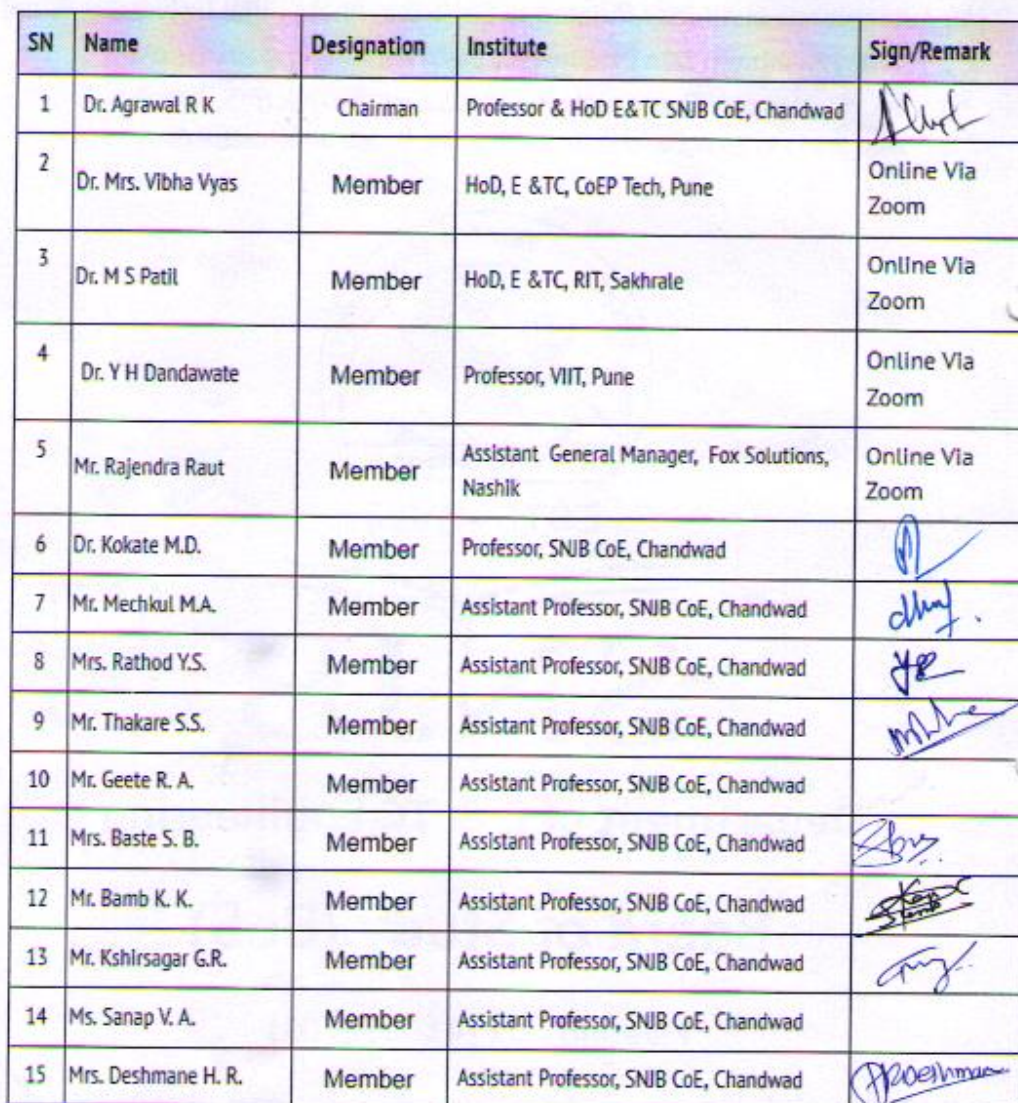 SN Name Designation Institute Sign/Remark
1 Dr. Agrawal R K Chairman Professor & HoD E&TC SNJB CoE, Chandwad
2 Dr. Mrs. Vibha Vyas Member HoD, E &TC, CoEP Tech, Pune Online Via
Zoom
3 Dr. M S Patil Member HoD, E &TC, RIT, Sakhrale Online Via
Zoom
4 Dr. Y H Dandawate Member Professor, VIIT, Pune Online Via
Zoom
5 Mr. Rajendra Raut Member Assistant General Manager, Fox Solutions, Online Via
Nashik Zoom
6 Dr. Kokate M.D. Member Professor, SNJB CoE, Chandwad
7 Mr. Mechkul M.A. Member Assistant Professor, SNJB CoE, Chandwad
8 Mrs. Rathod Y.S. Member Assistant Professor, SNJB CoE, Chandwad
9 Mr. Thakare S.S. Member Assistant Professor, SNJB CoE, Chandwad
10 Mr. Geete R. A. Member Assistant Professor, SNJB CoE, Chandwad
11 Mrs. Baste S. B. Member Assistant Professor, SNJB CoE, Chandwad
12 Mr. Bamb K. K. Member Assistant Professor, SNJB CoE, Chandwad
13 Mr. Kshirsagar G.R. Member Assistant Professor, SNJB CoE, Chandwad
14 Ms. Sanap V. A. Member Assistant Professor, SNJB CoE, Chandwad
15 Mrs. Deshmane H. R. Member Assistant Professor, SNJB CoE, Chandwad